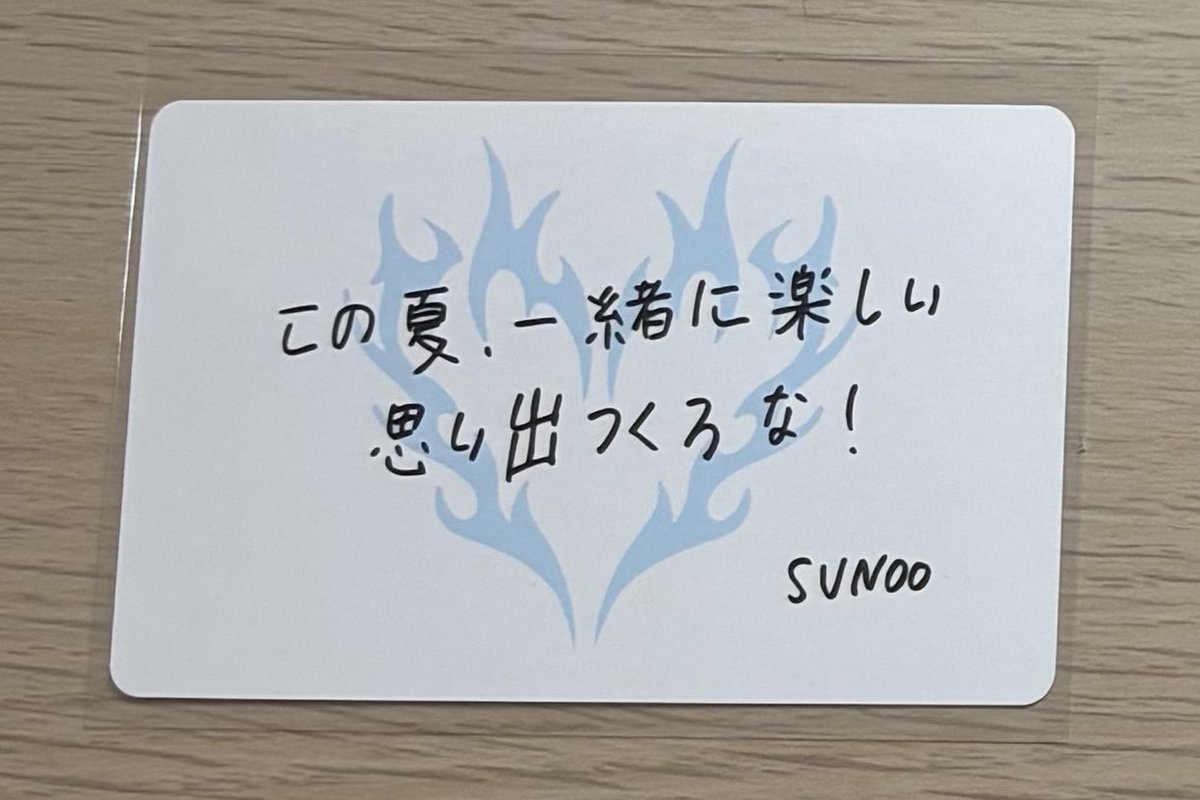 この夏、一緒に楽しい
思り出つくろな!
SUNOO